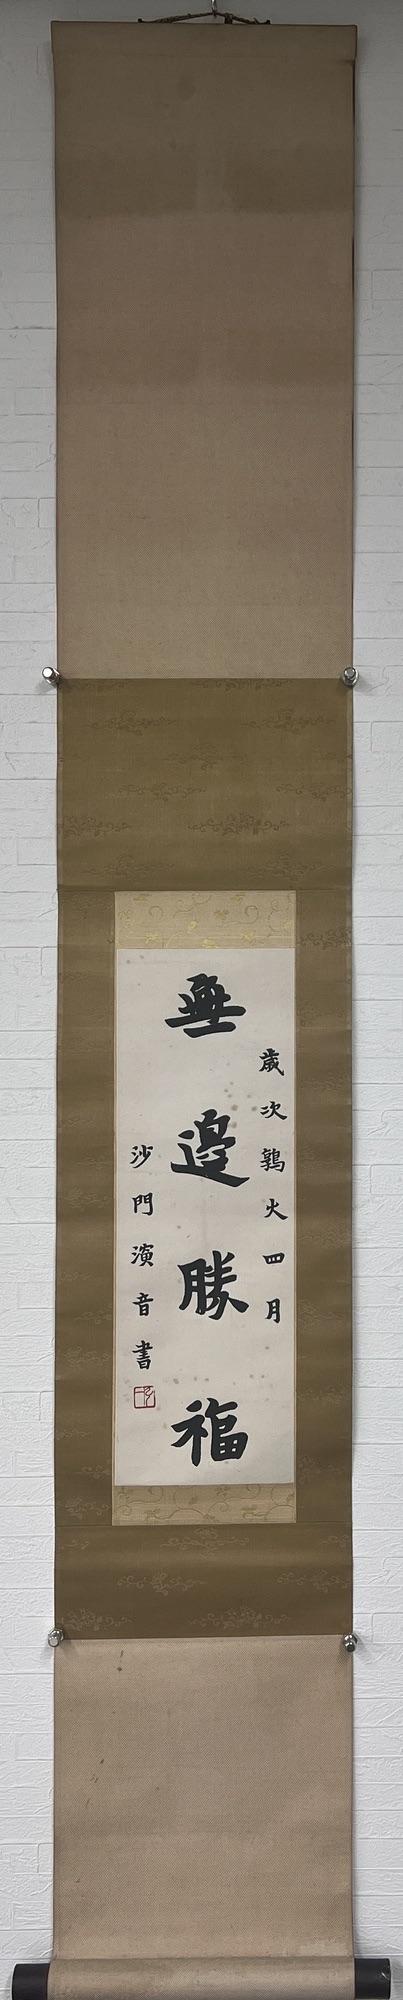 歲次鶉火四月
無邊勝福
沙門演音書